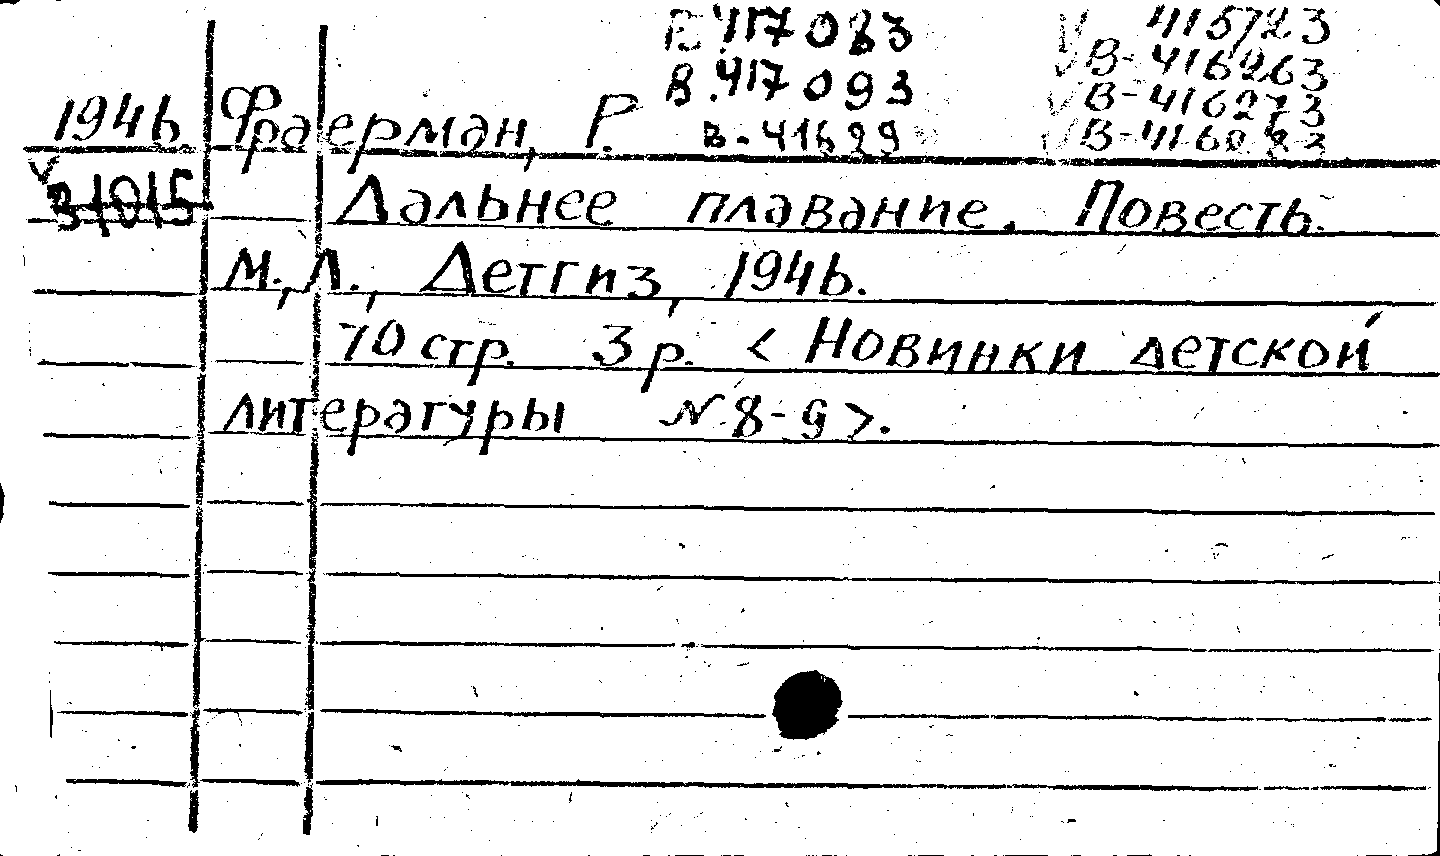 В.417083 415723
В.417093 В-416263
В-416273
1946. Фраерман, Р. В-41629 В-416283
31015 Дальнее плавание. Повесть.
М., Л., Детгиз, 1946.
70 стр. 3 р. <Новинки детской
литературы №8-9>.